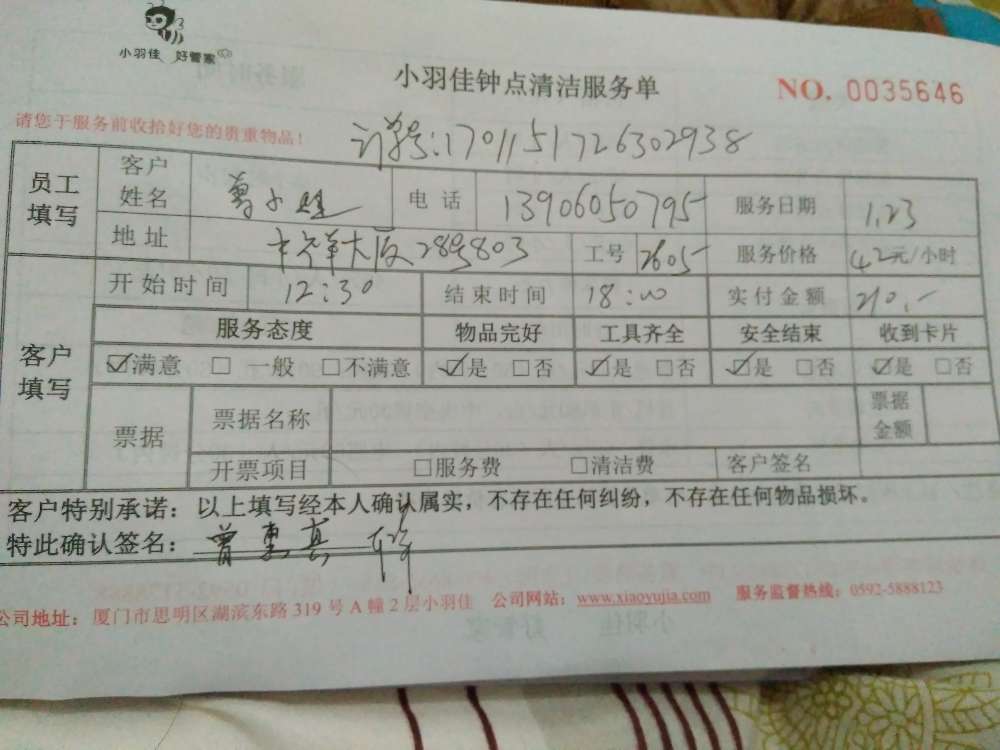 小羽佳 好管家
小羽佳钟点清洁服务单
NO. 0035646
请您于服务前收拾好您的贵重物品！
订单号:1701151726302938
员工填写 客户姓名 曾小姐 电话 13906050795 服务日期 1.23
地址 大厦289803 工号 2605 服务价格 42元/小时
客户填写 开始时间 12:30 结束时间 18:00 实付金额 210.-
服务态度 物品完好 工具齐全 安全结束 收到卡片
☑满意 □一般 □不满意 ☑是 □否 ☑是 □否 ☑是 □否 ☑是 □否
票据 票据名称 票据金额
开票项目 □服务费 □清洁费 客户签名
客户特别承诺：以上填写经本人确认属实，不存在任何纠纷，不存在任何物品损坏。
特此确认签名：曾惠真
公司地址：厦门市思明区湖滨东路319号A幢2层小羽佳 公司网站：www.xiaoyujia.com 服务监督热线：0592-5888123